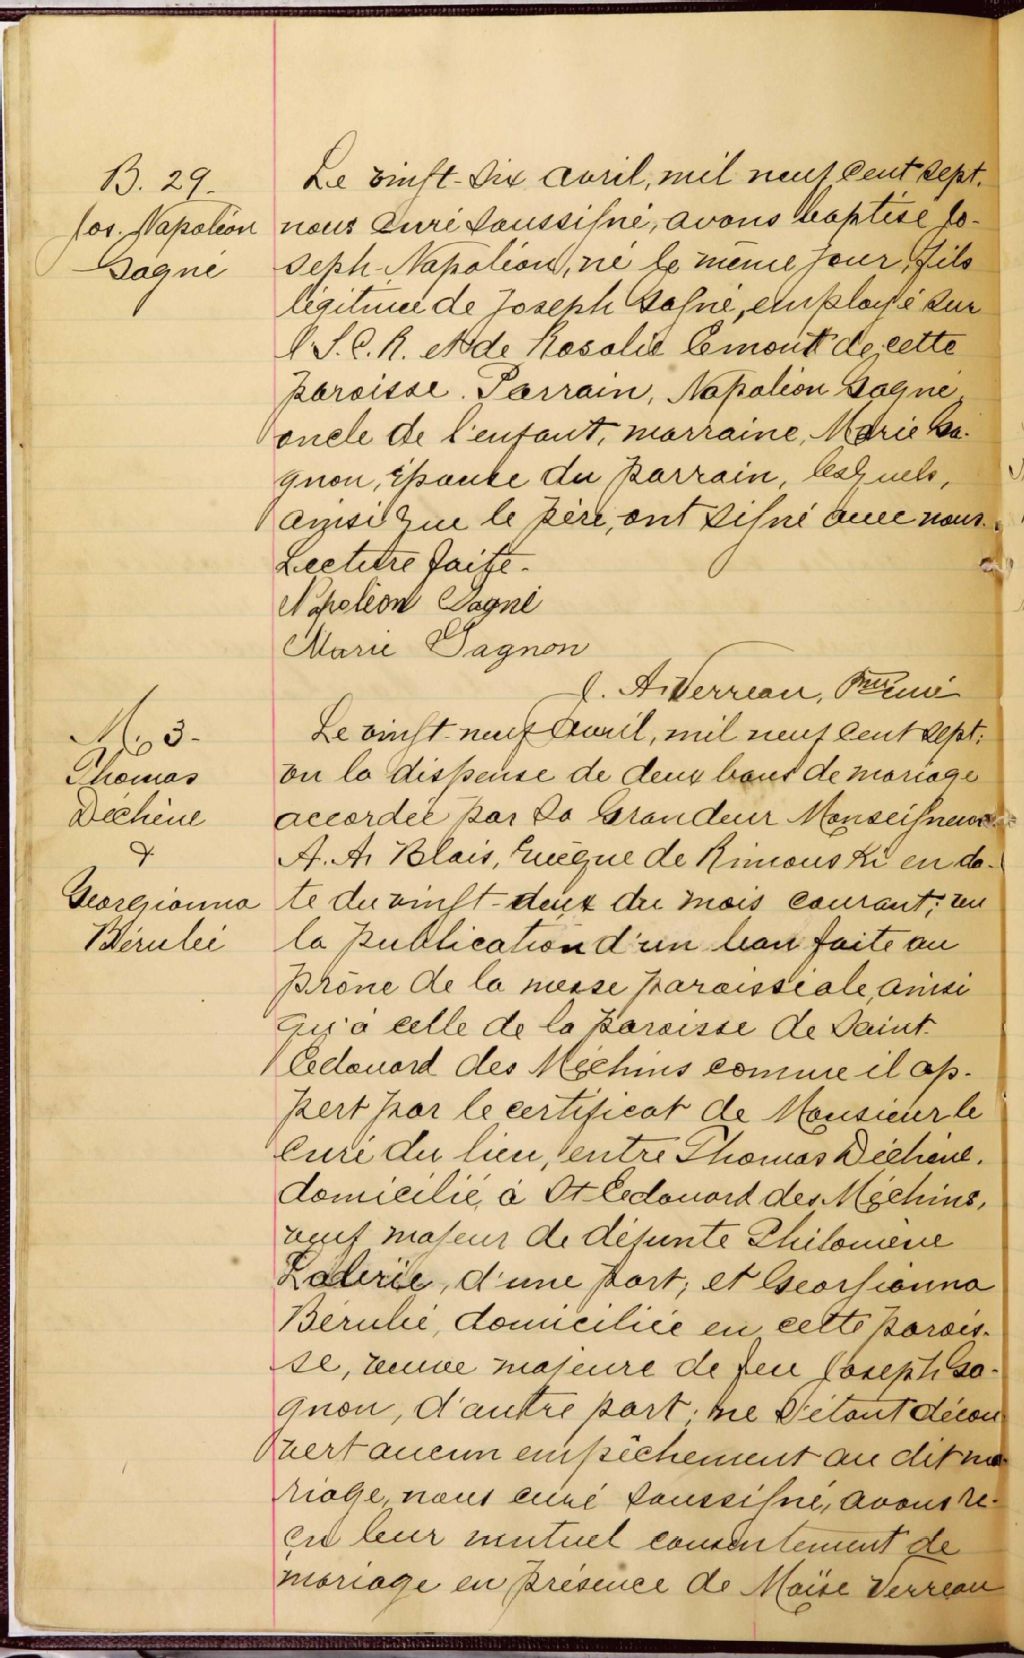 B. 29.
Jos. Napoléon
Gagné
Le vingt-six avril, mil neuf cent sept,
nous curé soussigné, avons baptisé Jo-
seph-Napoléon, né le même jour, fils
légitime de Joseph Gagné, employé sur
l'I.C.R. et de Rosalie Emont de cette
paroisse. Parrain, Napoléon Gagné,
oncle de l'enfant, marraine, Marie Ga-
gnon, épouse du parrain, lesquels,
ainsi que le père, ont signé avec nous.
Lecture faite.
Napoléon Gagné
Marie Gagnon
J. A. Verreau, Ptre curé
M. 3-
Thomas
Dechène
&
Georgianna
Bérubé
Le vingt-neuf avril, mil neuf cent sept;
vu la dispense de deux bans de mariage
accordée par Sa Grandeur Monseigneur
A. A. Blais, Evêque de Rimouski en da-
te du vingt-deux du mois courant; vu
la publication d'un ban faite au
prône de la messe paroissiale, ainsi
qu'à celle de la paroisse de Saint-
Edouard des Méchins comme il ap-
pert par le certificat de Monsieur le
Curé du lieu, entre Thomas Déchène,
domicilié, à St Edouard des Méchins,
veuf majeur de défunte Philomène
d'une part; et Georgianna
Bérubé, domiciliée en cette parois-
se, veuve majeure de feu Joseph Ga-
gnon, d'autre part; ne s'étant décou
vert aucun empêchement au dit ma-
riage, nous curé soussigné, avons re-
çu leur mutuel consentement de
mariage en présence de Moïse Verreau